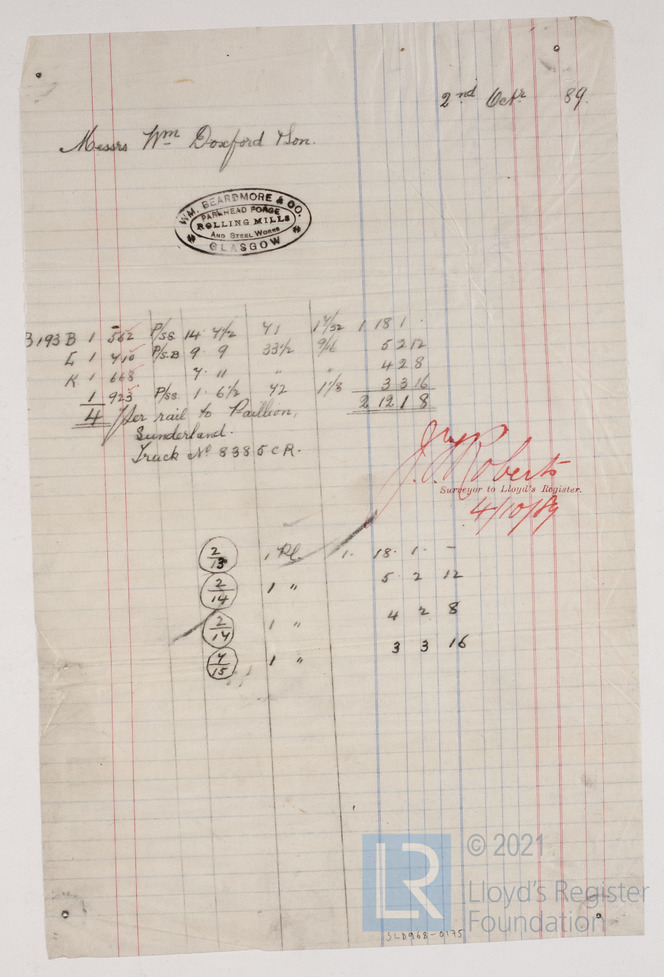 2nd Octr 89.
Messrs Wm Doxford & Son.
WM. BEARDMORE & CO.
PARKHEAD FORGE
ROLLING MILLS
AND STEEL WORKS
GLASGOW
B193 B 1 562 P/SS 14 7/2 41 17/32 1 18 1 -
L 1 410 P/S.B 9 9 33 1/2 9/16 5 2 12
K 1 668 7 11 " " 4 2 8
1 923 P/SS 1 6 1/2 42 1 1/8 3 3 16
4 2 12 1 8
Per rail to Paillion,
Sunderland.
Truck No 8385 CR.
Roberts
Surveyor to Lloyd's Register.
4/10/89
2/13 1 Pl. 1. 18. 1. -
2/14 1 " 5 2 12
2/14 1 " 4 2 8
4/15 1 " 3 3 16
LR
© 2021
Lloyd's Register
Foundation
SLD968-0175